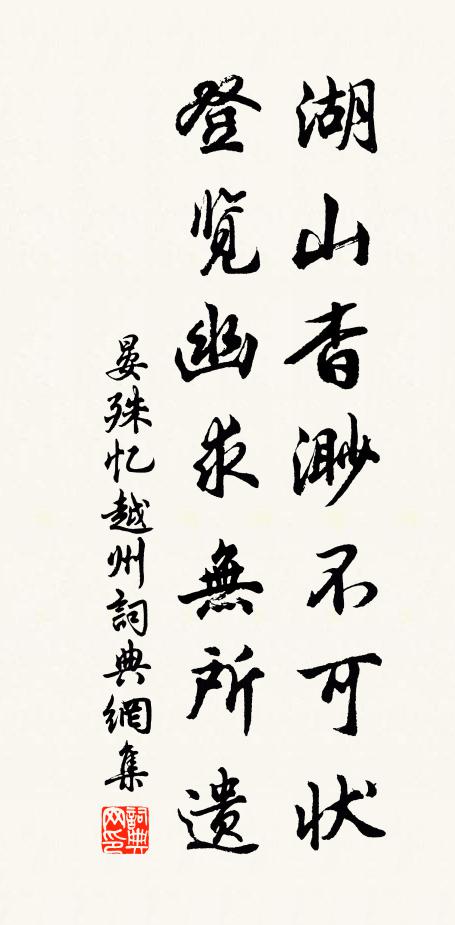 湖山杳渺不可状
登览幽求無所遗
晏殊忆越州詞典網集
詞典網印